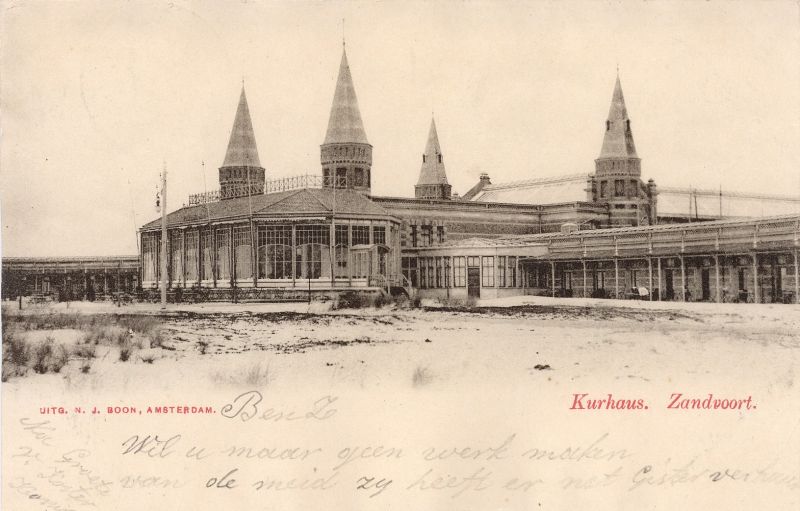 Kurhaus. Zandvoort.
UITG. N. J. BOON, AMSTERDAM.
Ben Z
Wil u maar geen werk maken
van de meid zy heeft er net Gister
Groete
Zoster